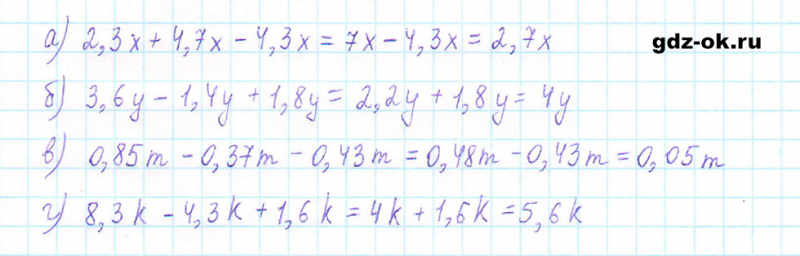 а) 2,3x + 4,7x - 4,3x = 7x - 4,3x = 2,7x
gdz-ok.ru
б) 3,6y - 1,4y + 1,8y = 2,2y + 1,8y = 4y
в) 0,85m - 0,37m - 0,43m = 0,48m - 0,43m = 0,05m
г) 8,3k - 4,3k + 1,6k = 4k + 1,6k = 5,6k